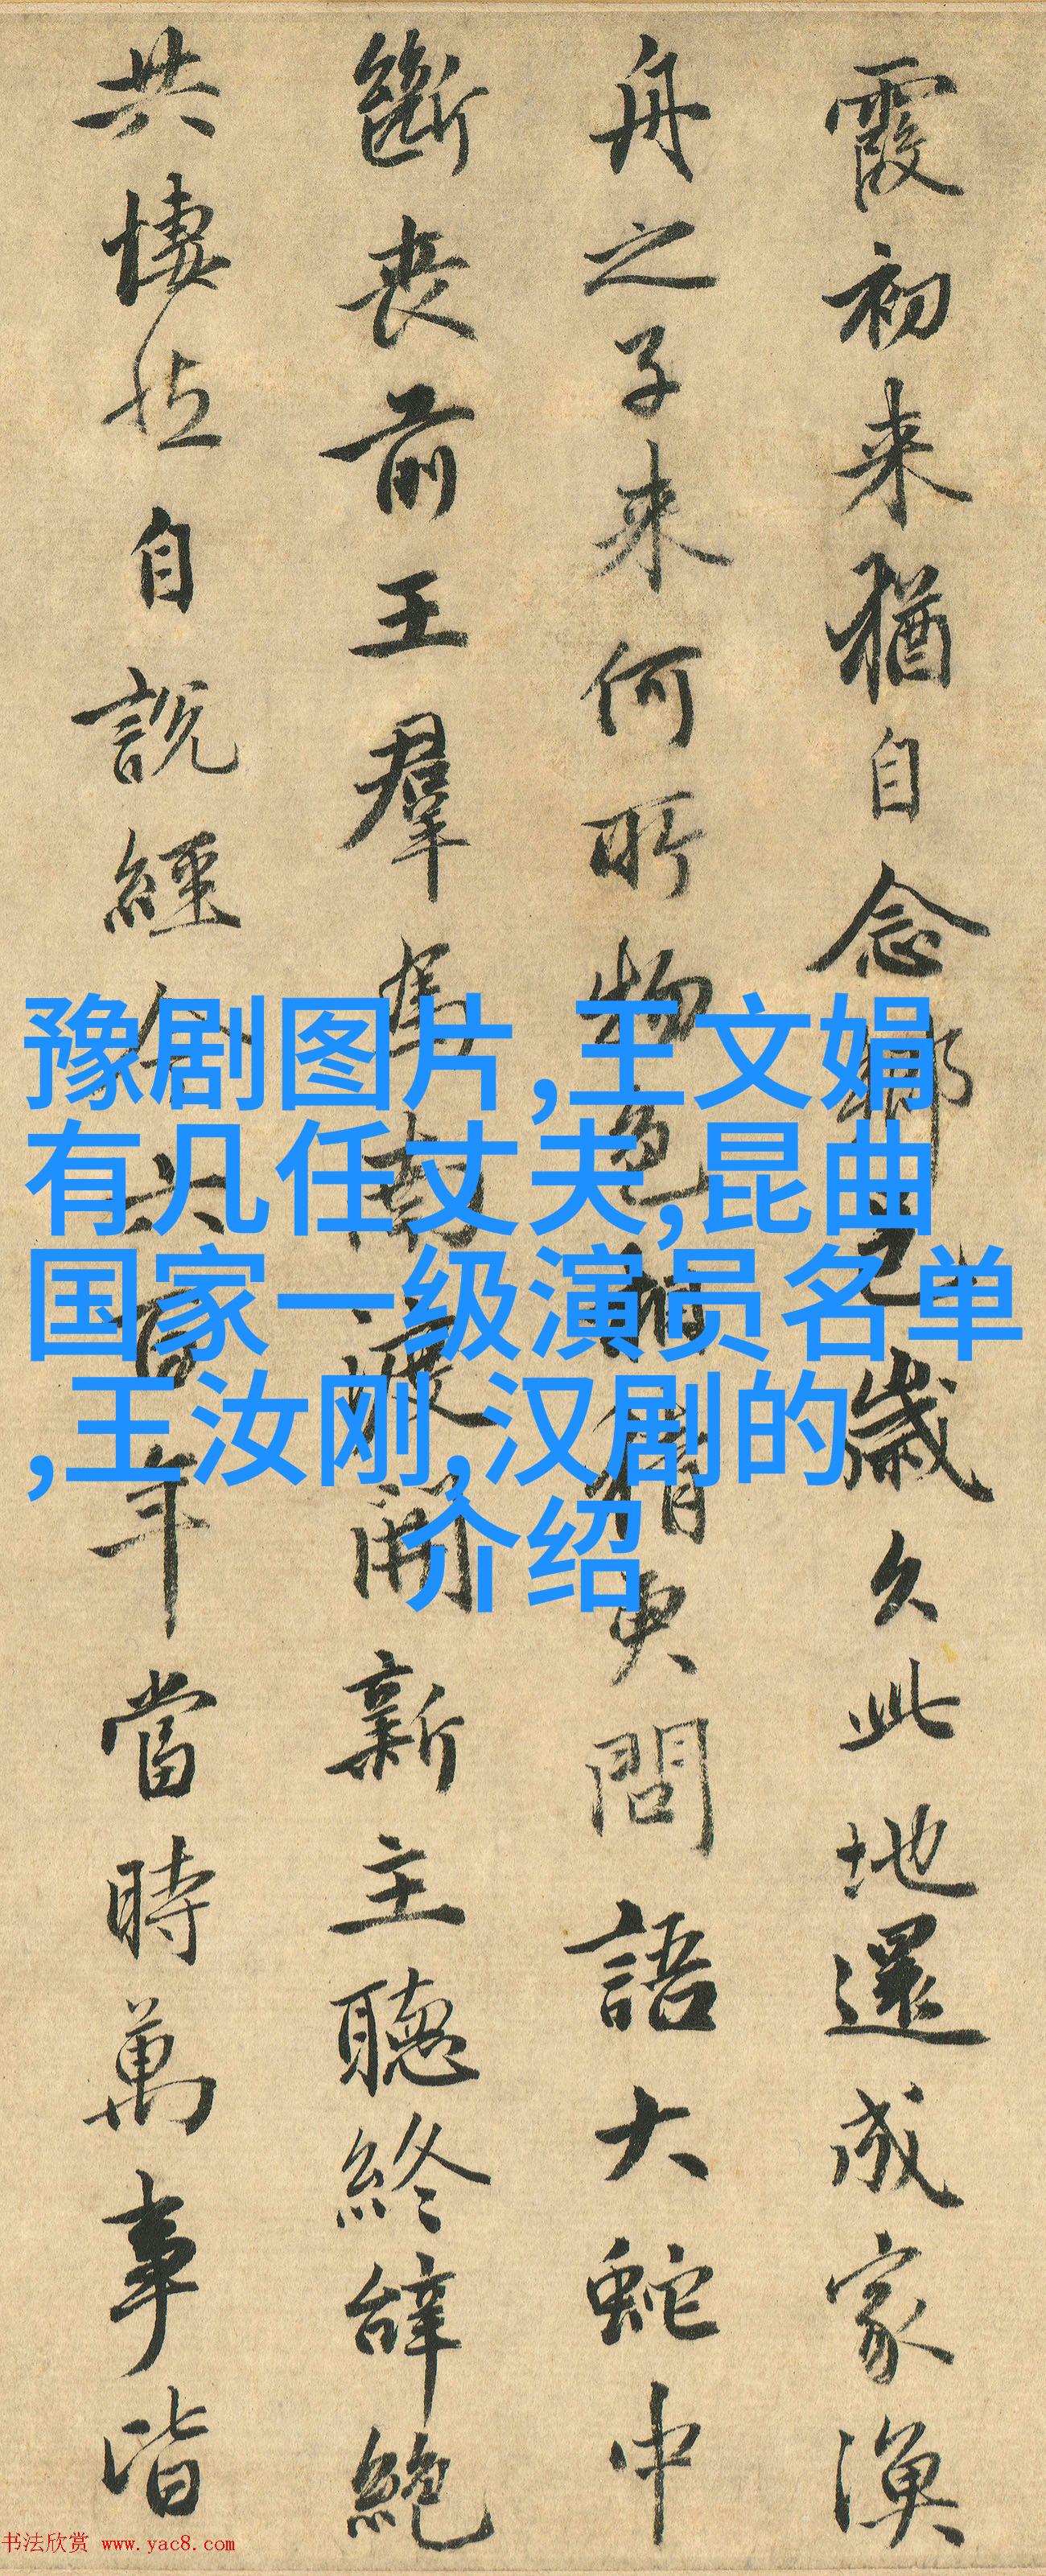 霞初来猶自念鄉邑歲久此地還成家漁
舟之子来何所物色相猜更問語大蛇中
斷喪前王羣馬南渡開新主聽終辭絶
共悽然自說經今六百年當時萬事皆
豫剧图片,王文娟
有几任丈夫,昆曲
国家一级演员名单
,王汝刚,汉剧的
介绍
书法欣赏 www.yac8.com